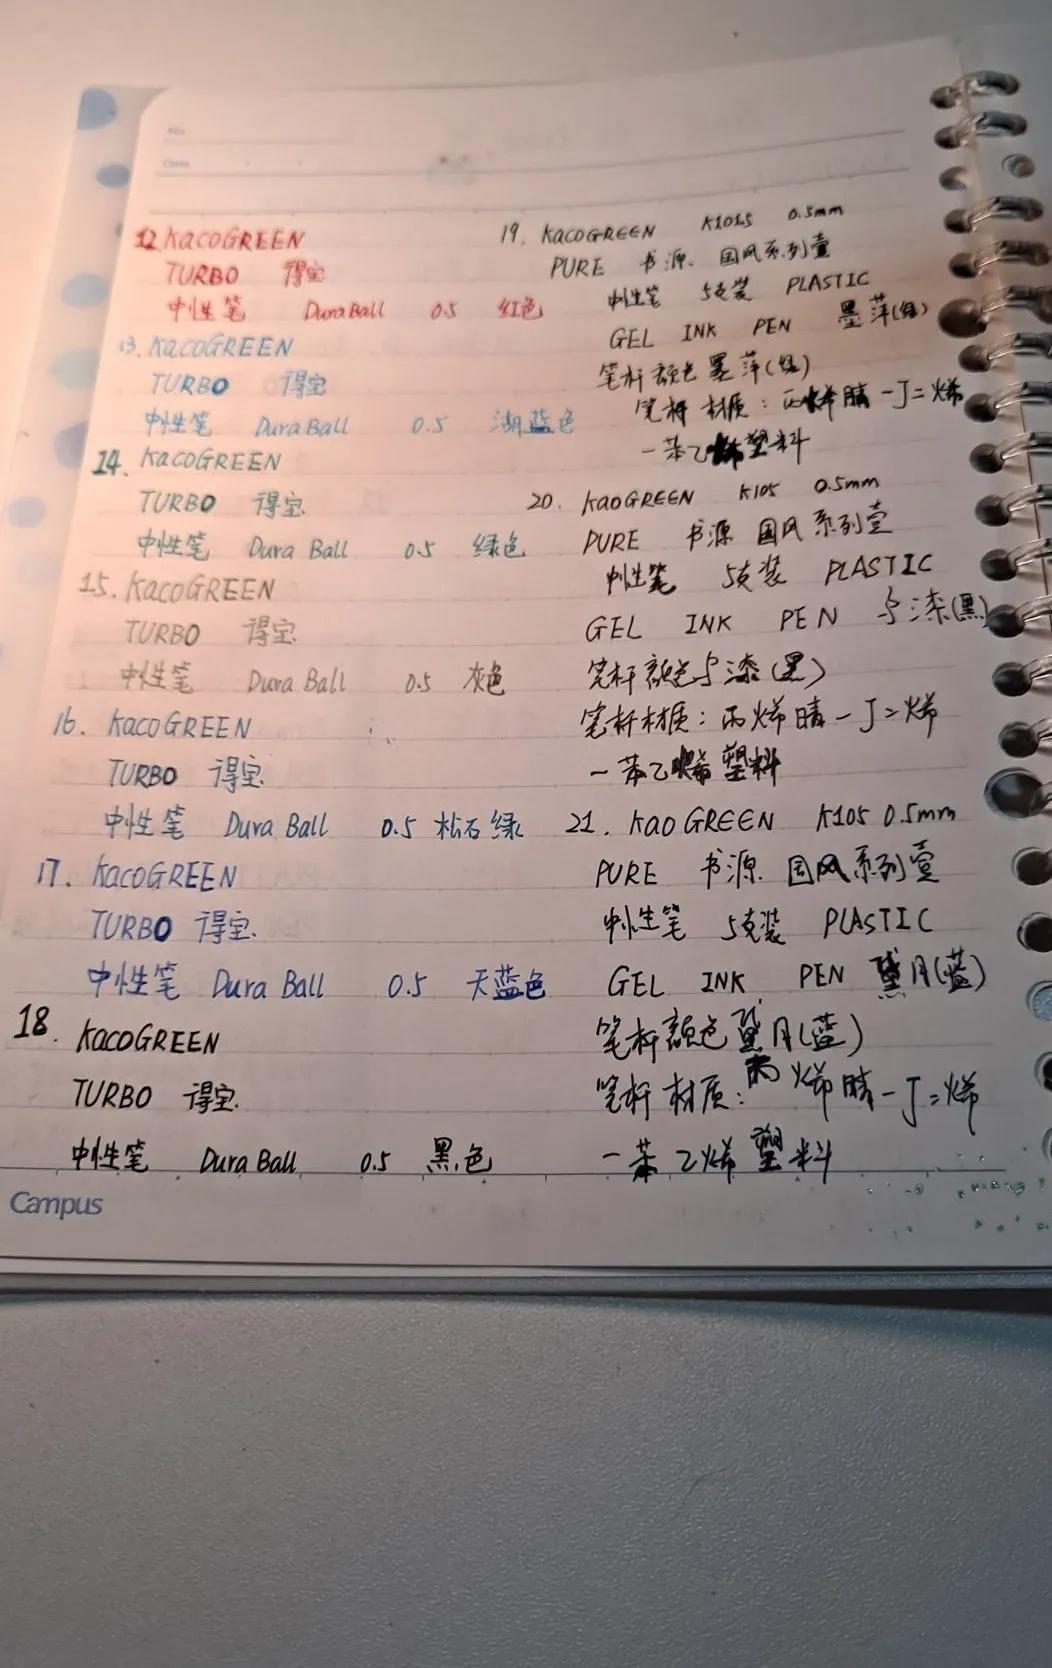 12. KacoGREEN
TURBO 得宝
中性笔 Dura Ball 0.5 红色
13. KacoGREEN
TURBO 得宝
中性笔 Dura Ball 0.5 湖蓝色
14. KacoGREEN
TURBO 得宝
中性笔 Dura Ball 0.5 绿色
15. KacoGREEN
TURBO 得宝
中性笔 Dura Ball 0.5 灰色
16. KacoGREEN
TURBO 得宝
中性笔 Dura Ball 0.5 松石绿
17. KacoGREEN
TURBO 得宝
中性笔 Dura Ball 0.5 天蓝色
18. KacoGREEN
TURBO 得宝
中性笔 Dura Ball 0.5 黑色
19. KacoGREEN K1015 0.5mm
PURE 书源 国风系列壹
中性笔 5支装 PLASTIC
GEL INK PEN 墨萍(绿)
笔杆颜色墨萍(绿)
笔杆材质：丙烯腈-丁二烯
-苯乙烯塑料
20. KaoGREEN K105 0.5mm
PURE 书源 国风系列壹
中性笔 5支装 PLASTIC
GEL INK PEN 漆(黑)
笔杆颜色 漆(黑)
笔杆材质：丙烯晴-丁二烯
-苯乙烯塑料
21. KaoGREEN K105 0.5mm
PURE 书源 国风系列壹
中性笔 5支装 PLASTIC
GEL INK PEN 黛月(蓝)
笔杆颜色黛月(蓝)
笔杆材质：丙烯腈-丁二烯
-苯乙烯塑料
Campus